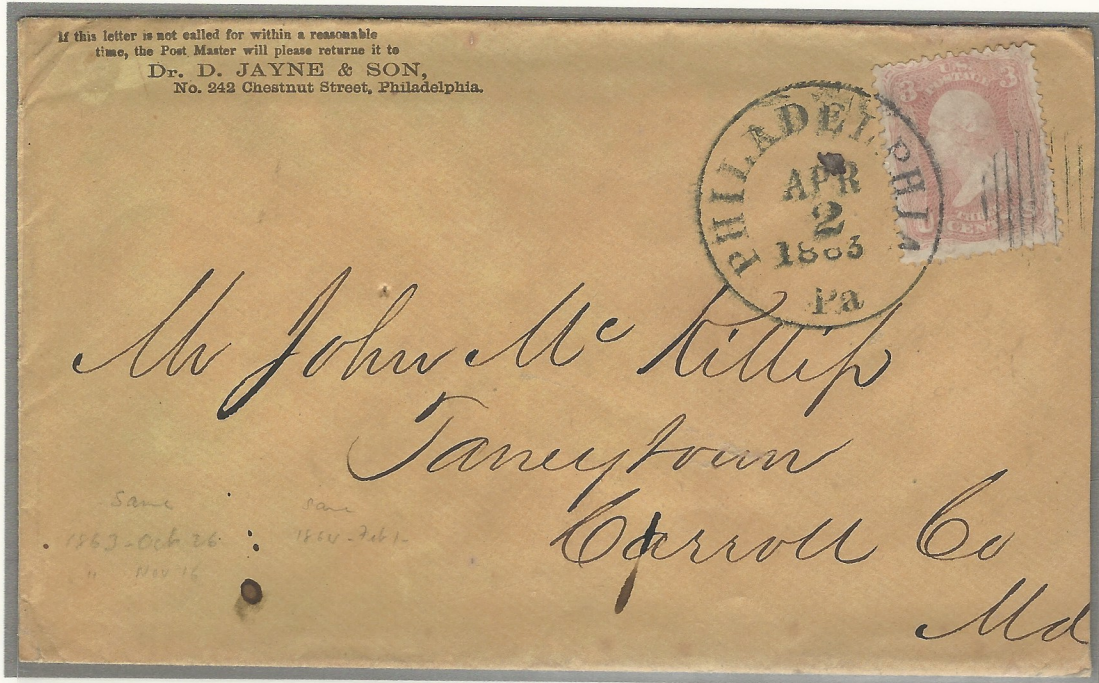 If this letter is not called for within a reasonable
time, the Post Master will please returne it to
Dr. D. JAYNE & SON,
No. 242 Chestnut Street, Philadelphia.
3 U.S. 3
POSTAGE
PHILADELPHIA
APR
2
1863
Pa
Mr John McKillip
Taneytown
Carroll Co
Md
Same
1863-Oct 26
" Nov 16
Same
1864-Feb 1-